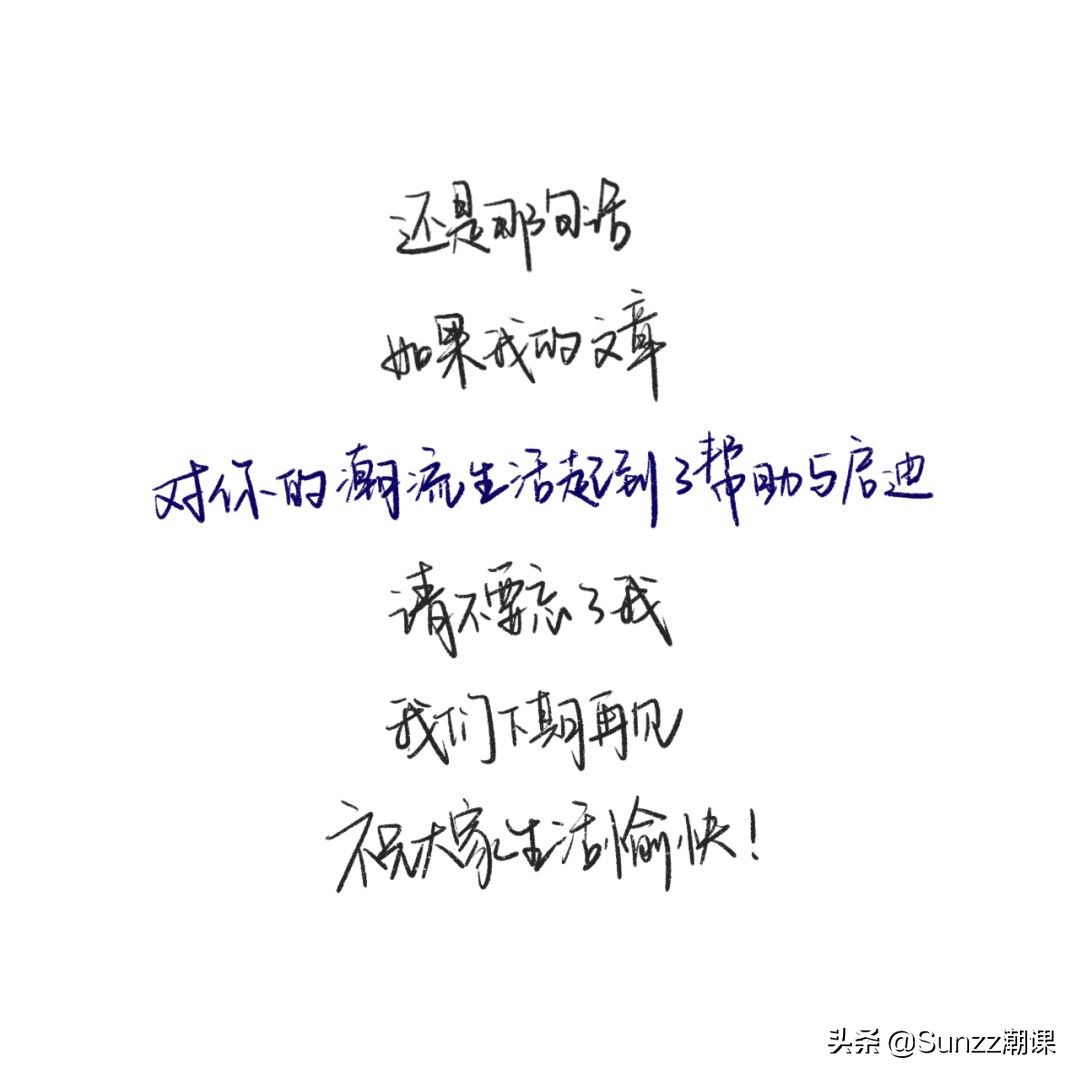 还是那句话
如果我的文章
对你的潮流生活起到了帮助与启迪
请不要忘了我
我们下期再见
祝大家生活愉快！
头条 @Sunzz潮课